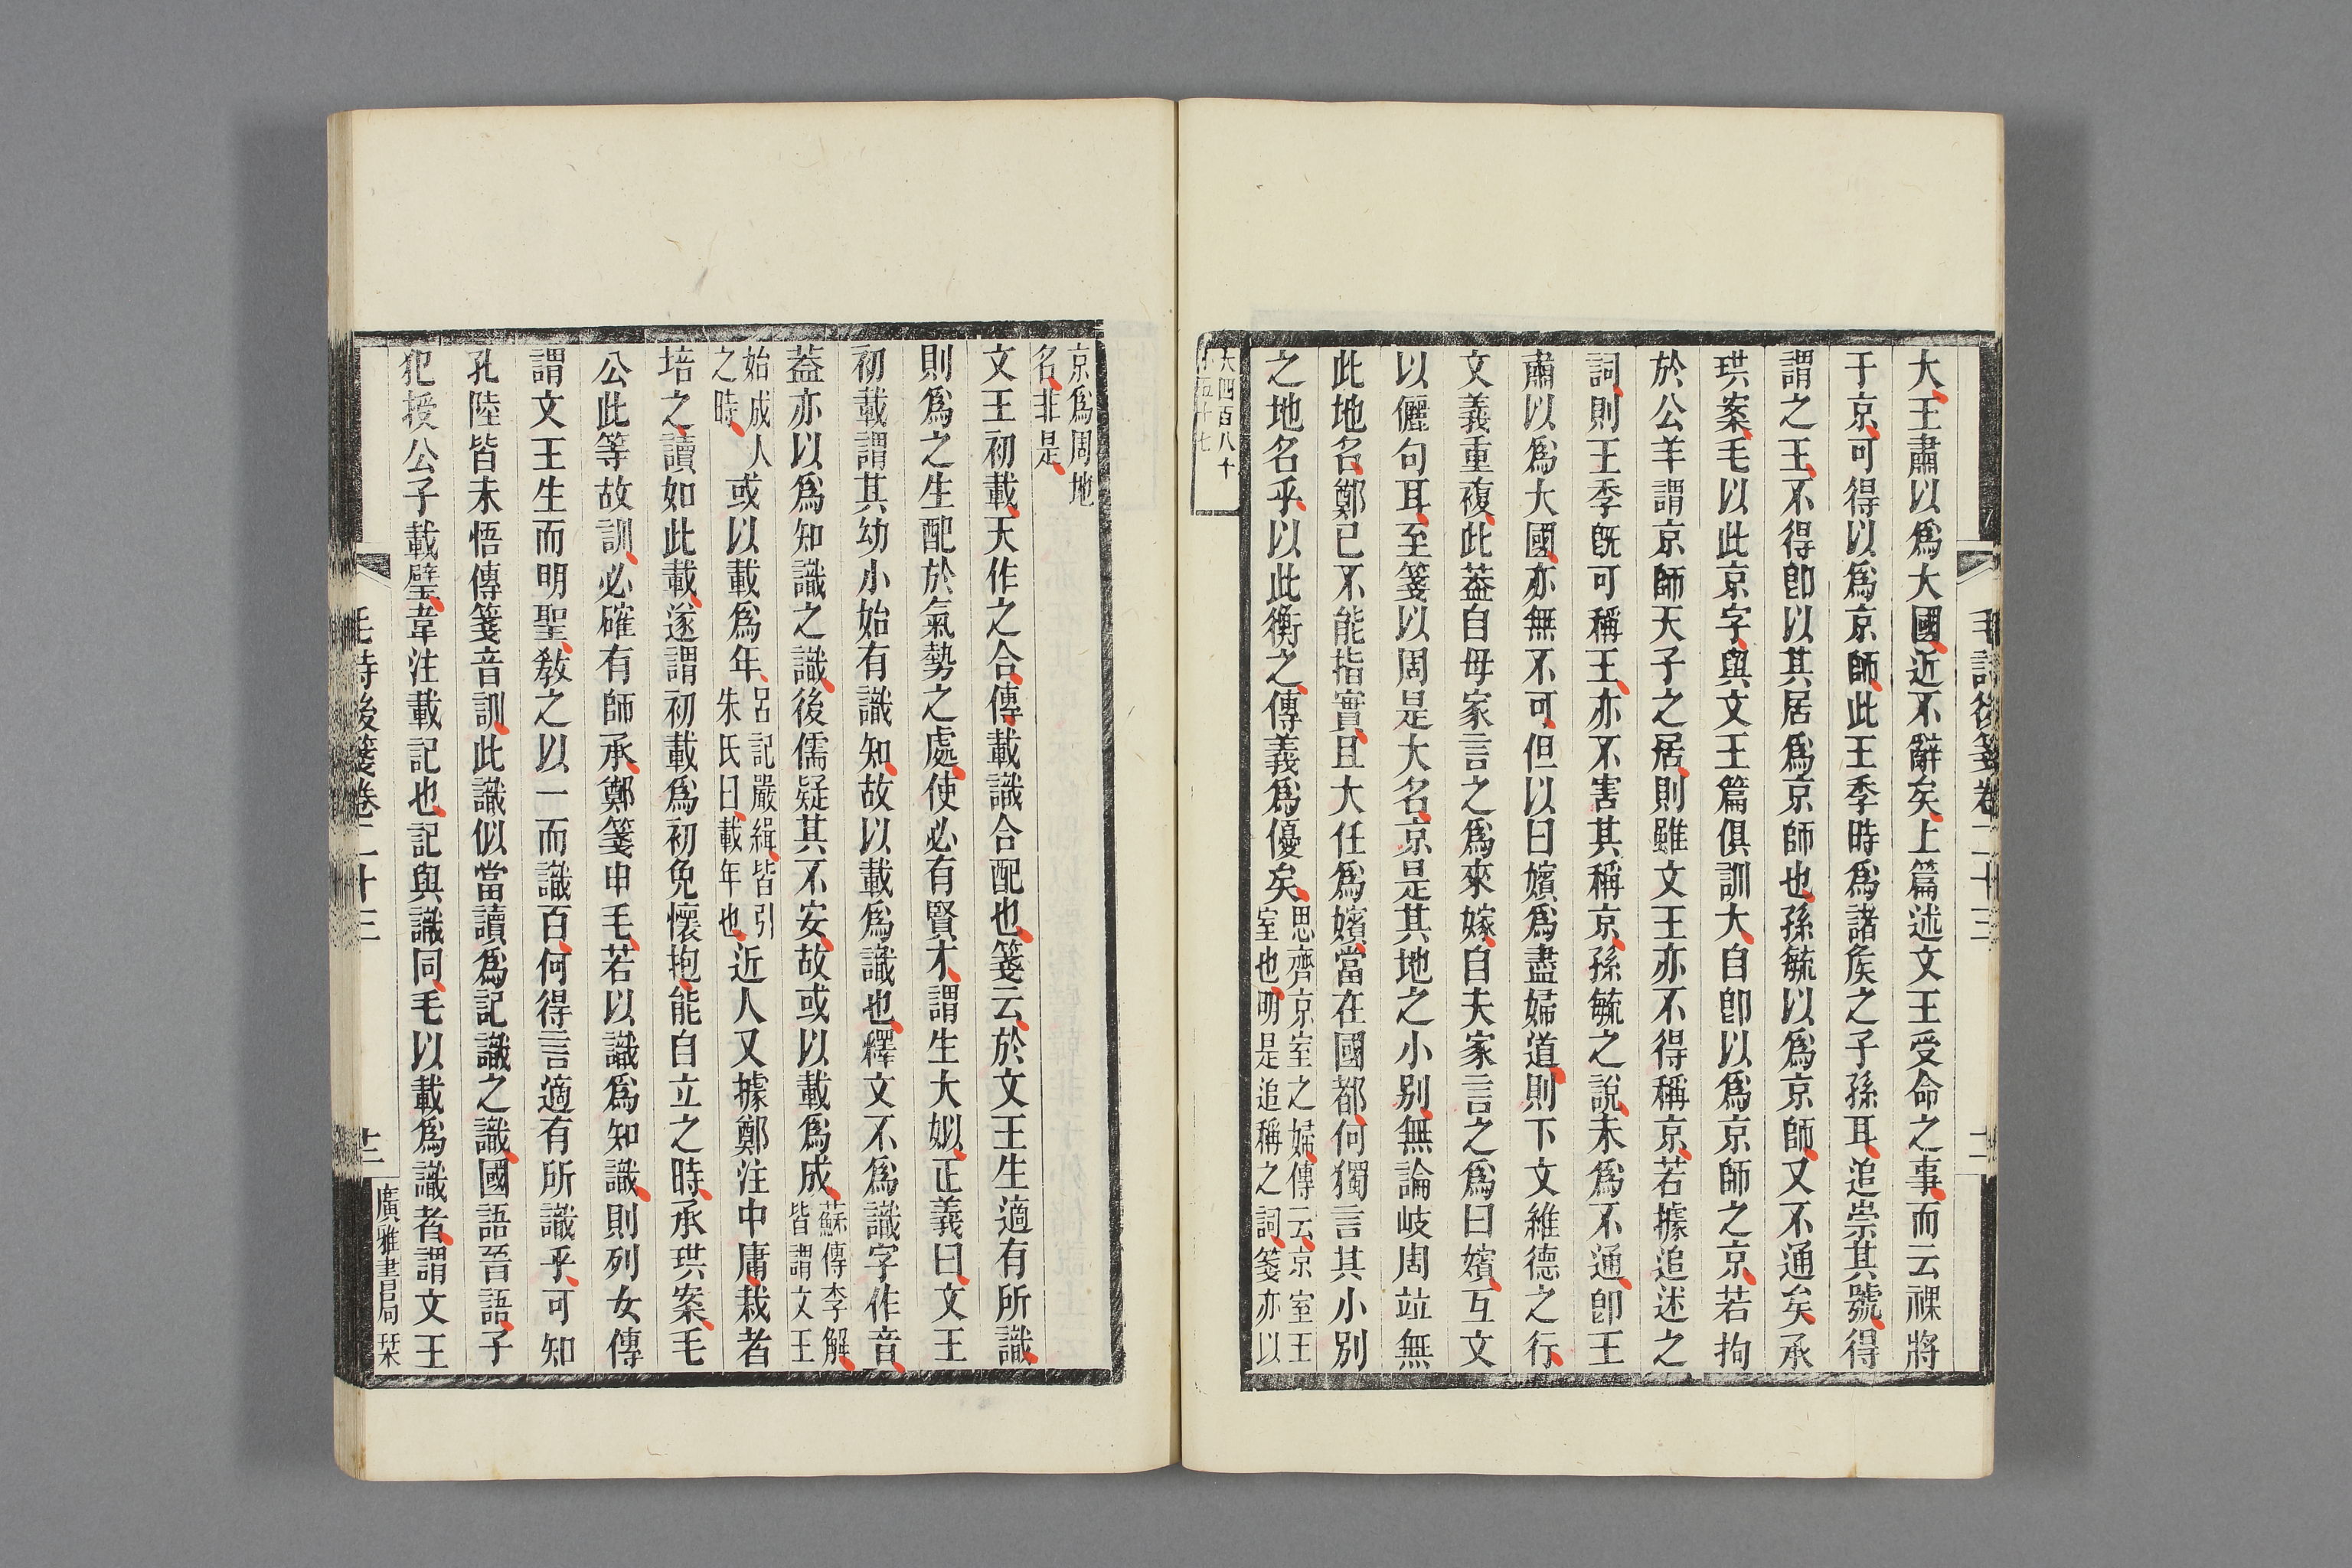 毛詩後箋卷二十三
大王肅以爲大國近不辭矣上篇述文王受命之事而云祼將
于京可得以爲京師此王季時爲諸矦之子孫耳追崇其號得
謂之王不得卽以其居爲京師也孫毓以爲京師又不通矣承
珙案毛以此京字與文王篇俱訓大自卽以爲京師之京若拘
於公羊謂京師天子之居則雖文王亦不得稱京若據追述之
詞則王季旣可稱王亦不害其稱京孫毓之說未爲不通卽王
肅以爲大國亦無不可但以曰嬪爲盡婦道則下文維德之行
文義重複此葢自母家言之爲來嫁自夫家言之爲曰嬪互文
以儷句耳至箋以周是大名京是其地之小別無論岐周竝無
此地名鄭已不能指實且大任爲嬪當在國都何獨言其小別
之地名乎以此衡之傳義爲優矣思齊京室之婦傳云京室王
室也明是追稱之詞箋亦以
大四百八十
小五十七
京爲周地
名非是
文王初載天作之合傳載識合配也箋云於文王生適有所識
則爲之生配於氣勢之處使必有賢才謂生大姒正義曰文王
初載謂其幼小始有識知故以載爲識也釋文不爲識字作音
葢亦以爲知識之識後儒疑其不安故或以載爲成蘇傳李解
皆謂文王
始成人
之時或以載爲年呂記嚴緝皆引
朱氏曰載年也近人又據鄭注中庸栽者
培之讀如此載遂謂初載爲初免懷抱能自立之時承珙案毛
公此等故訓必確有師承鄭箋申毛若以識爲知識則列女傳
謂文王生而明聖敎之以一而識百何得言適有所識乎可知
孔陸皆未悟傳箋音訓此識似當讀爲記識之識國語晉語子
犯授公子載璧韋注載記也記與識同毛以載爲識者謂文王
毛詩後箋卷二十三
廣雅書局栞